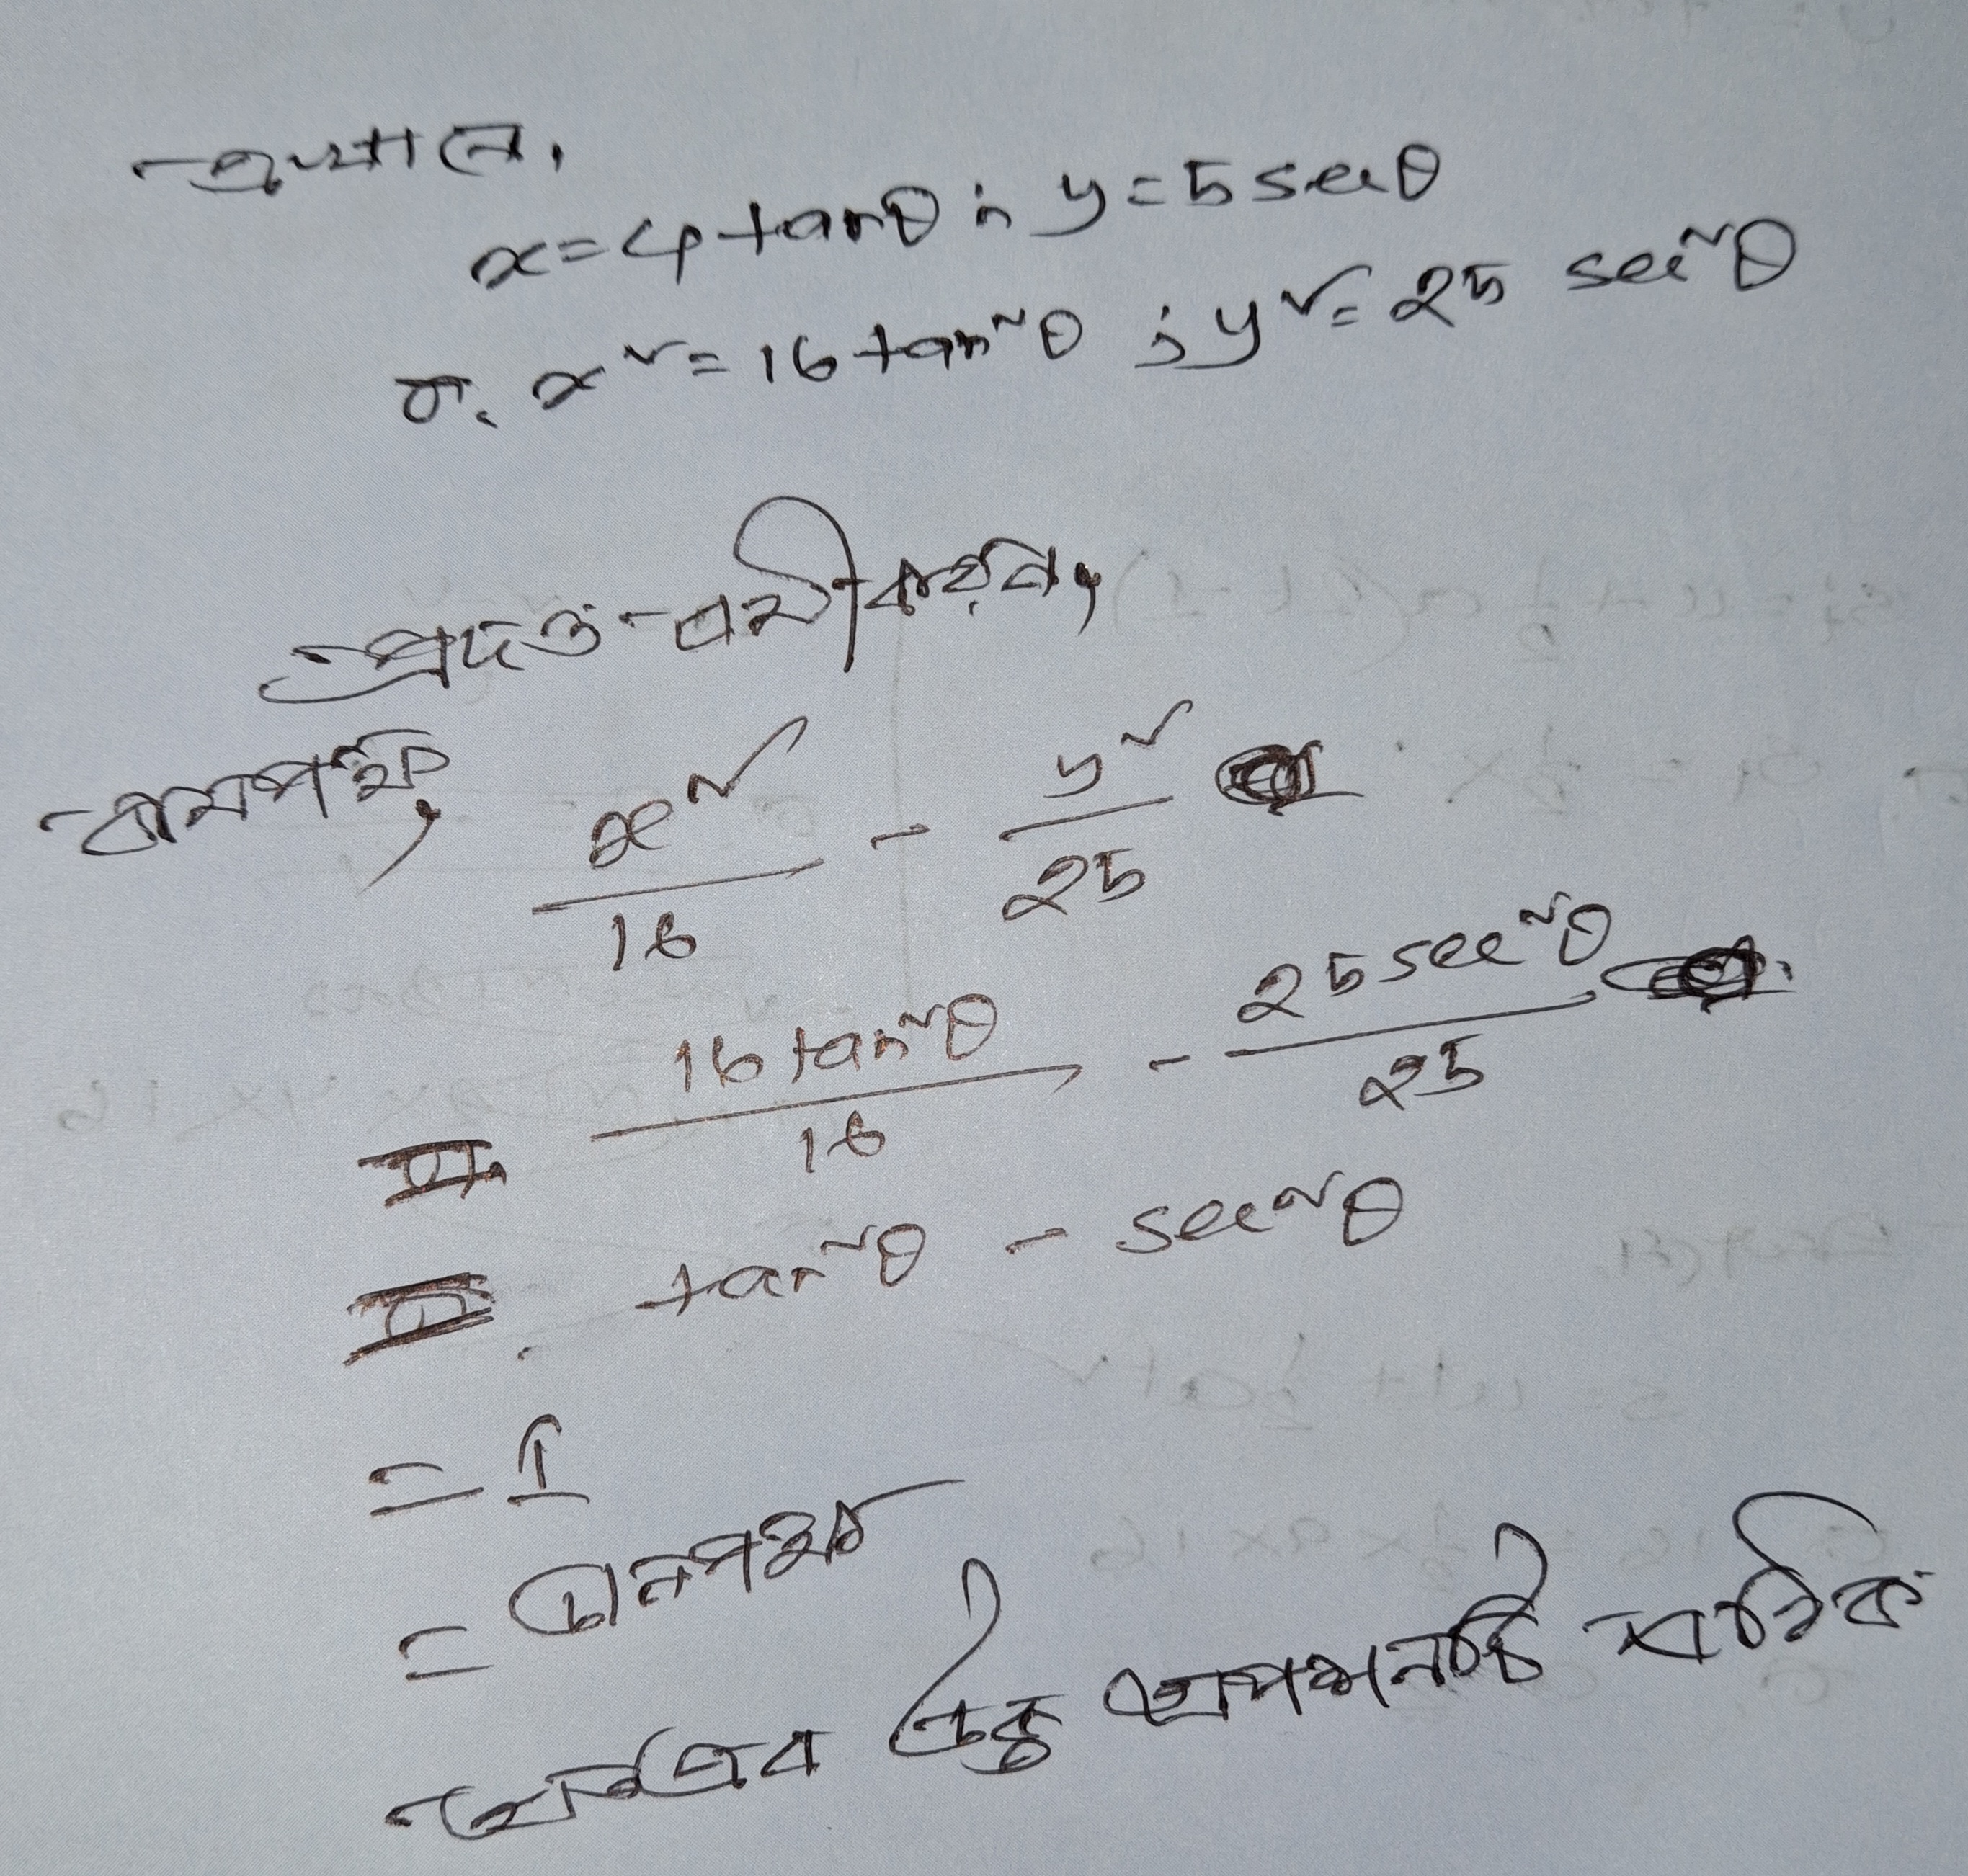 এখানে,
x = 4 tanθ ; y = 5 secθ
বা, x² = 16 tan²θ ; y² = 25 sec²θ
প্রদত্ত সমীকরন,
বামপক্ষ, x²/16 - y²/25
= 16 tan²θ/16 - 25 sec²θ/25
= tan²θ - sec²θ
= 1
= ডানপক্ষ
অতএব উক্ত অপশনটি সঠিক